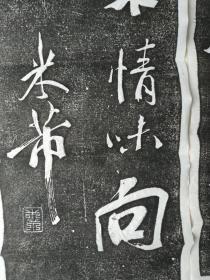 情味向
米芾